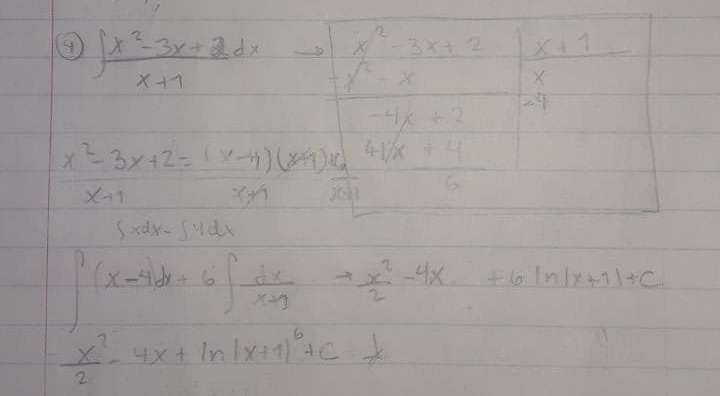 4) ∫ x² - 3x + 2 dx / x + 1 → x² - 3x + 2 | x + 1
- x² - x | x - 4
- 4x + 2
4x + 4
6
x² - 3x + 2 / x + 1 = (x - 4)(x + 1) / x + 1
∫xdx - ∫4dx
∫(x - 4)dx + 6 ∫ dx / x + 1 → x² / 2 - 4x + 6 ln|x + 1| + C
x² / 2 - 4x + ln|x + 1|⁶ + C